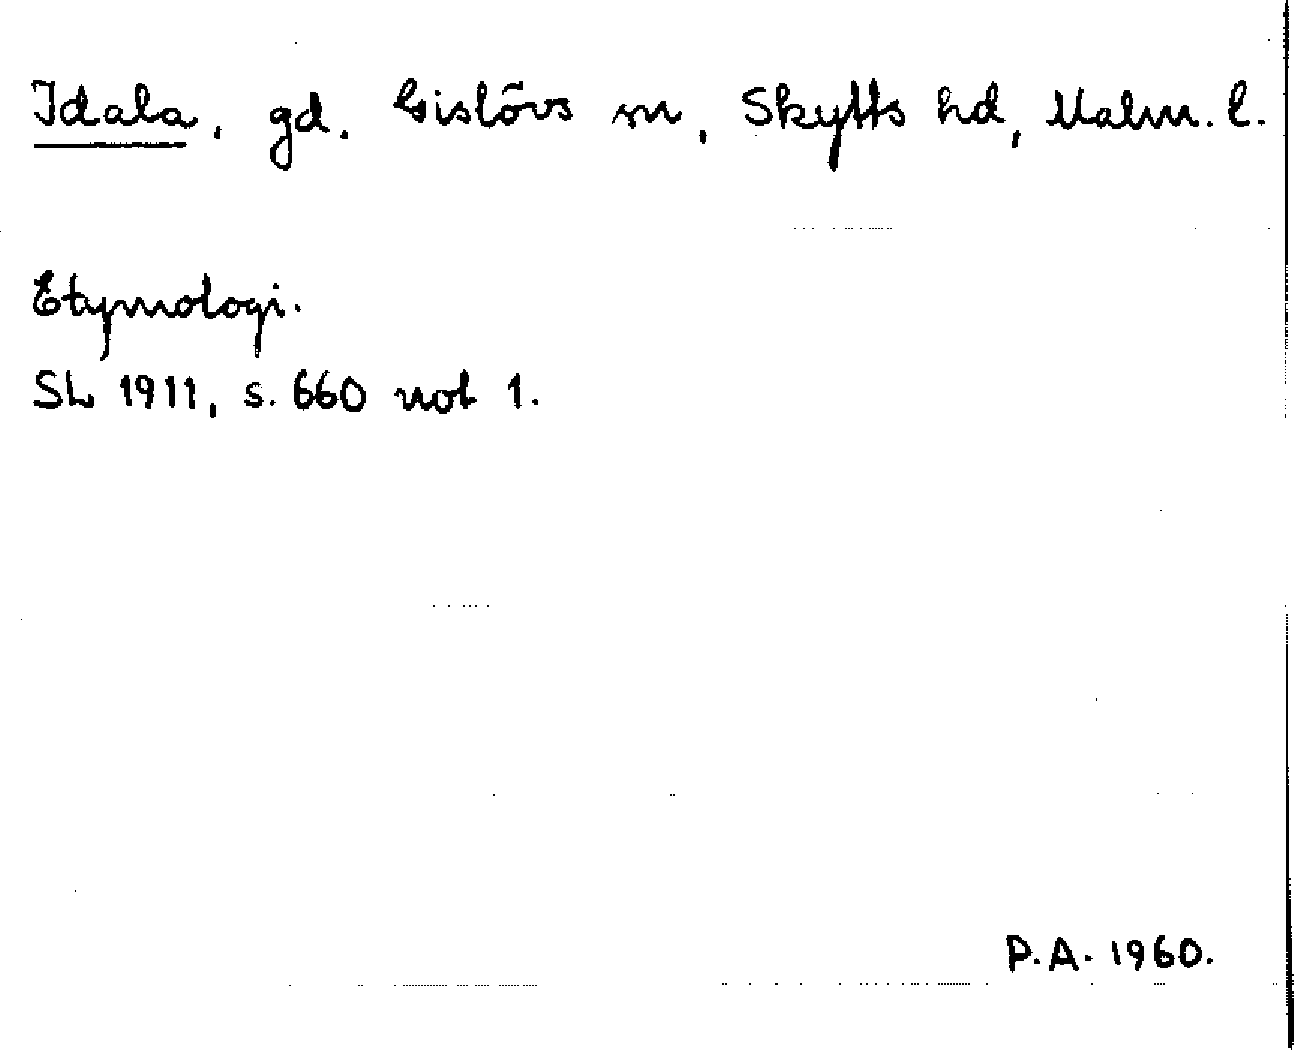 Idala, gd. Gislövs sn, Skytts hd, Malm. l.
Etymologi.
SL 1911, s. 660 not 1.
P.A. 1960.